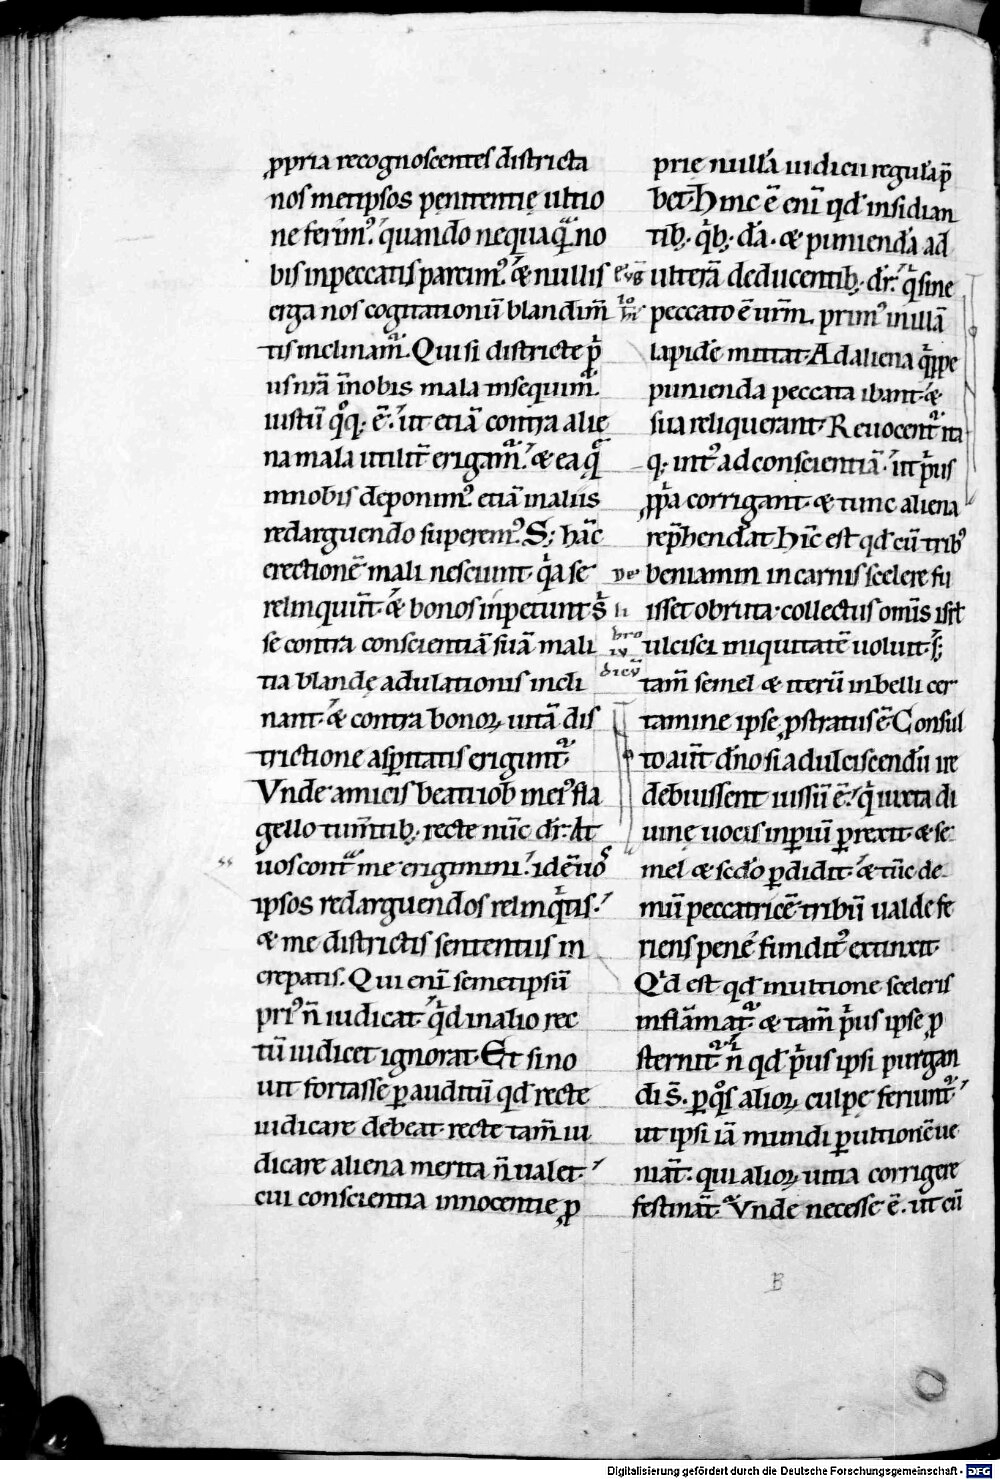 ꝓpria recognoscentes districta
nos metipsos penitentię ultio
ne ferim᷒. quando nequaquā no
bis in peccatis parcim᷒. & nullis
erga nos cogitationū blandim̄
tis inclinam᷒. Qui si districte p̄
us nr̄a in nobis mala insequim᷒.
iustū quoq; ē. ut etiā contra alie
na mala utilit̄ erigam᷒. & ea que
in nobis deponim᷒. etiā in aliis
redarguendo superem᷒. S; hāc
erectionē mali nesciunt. quia se
relinquūt. & bonos inpetunt. S;
se contra conscientiā suā mali
tia blandę adulationis incli
nant. & contra bonoꝝ uitā dis
trictione asꝑitatis erigunt᷒.
Vnde amicis beati iob inei᷒ fla
gello tum̄tib; recte nūc dr̄. At
uos contra me erigimini. idē uos
ipsos redarguendos relinqͥtis.
& me districtis sententiis in
crepatis. Qui enī semetipsū
pri᷒ n̄ iudicat. quid in alio rec
tū iudicet ignorat. Et si no
uit fortasse ꝑ auditū qd̄ recte
iudicare debeat. recte tam̄ iu
dicare aliena merita n̄ ualet.
cui conscientia innocentie ꝓ
prię nullā iudicii regulā p̄
bet. Hinc ē enī qd̄ insidian
tib; qͥb;dā. & punienda ad
ulterā deducentib; dr̄. qͥ sine
peccato ē ur̄m. prim᷒ in illā
lapidē mittat. Ad aliena qͥppe
punienda peccata ibant. &
sua reliquerant. Reuocent᷒ ita
q; int᷒ ad conscientiā. ut pͥus
ꝓpͥa corrigant. & tunc aliena
rep̄hendāt. Hīc est qd̄ cū trib᷒
beniamin in carnis scelere fu
isset obruta. collectus omīs isrl̄
ulcisci iniquitatē uoluit. s;
tam̄ semel & iterū in belli cer
tamine ipse ꝓstratus ē. Consul
to aut̄ dn̄o si ad ulciscendū ire
debuissent iussū ē. Qui iuxta di
uinę uocis inꝑiū ꝑrexit. & se
mel & scd̄o ꝑdidit. & tūc de
mū peccatricē tribū ualde fe
riens penę fundit᷒ extinxit.
Qͥd est qd̄ in ultione sceleris
inflāmat᷒. & tam̄ pͥus ipse ꝓ
sternit᷒. n̄ qd̄ pͥus ipsi purgan
di s̄. ꝑ qͦs alioꝝ culpę feriunt᷒.
ut ipsi iā mundi ꝑ ultionē ue
niāt. qui alioꝝ uitia corrigere
festināt. Vnde necesse ē. ut cū
Eug̅
Io
De
li
bro
iu
dicū
B
Digitalisierung gefördert durch die Deutsche Forschungsgemeinschaft - DFG